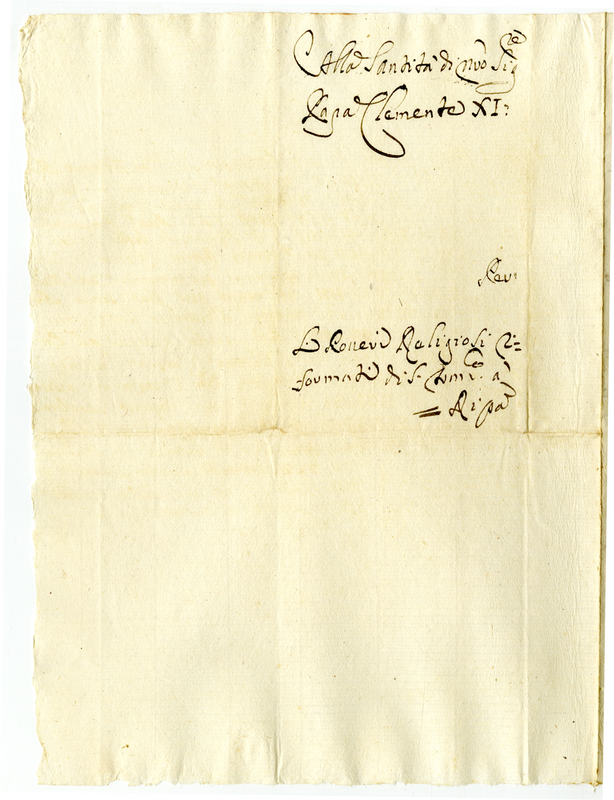 Alla Santità di Nro Sigre
Papa Clemente XI:
Per
Li Poveri Religiosi Ri=
formati di S. Franco a
= Ripa